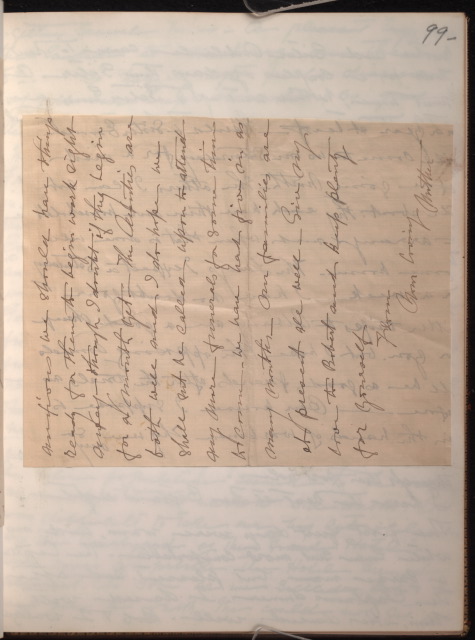 99-
anxious we should have things
ready for them to begin work right
away - though I doubt if they begin
for a month yet. The are
both well and I do hope we
shall not be called upon to attend
any more funerals for some time
to come - we have had five in as
many months - Our families are
at present all well - Give my
love to Robert and keep plenty
for yourself
From
Your loving Mother